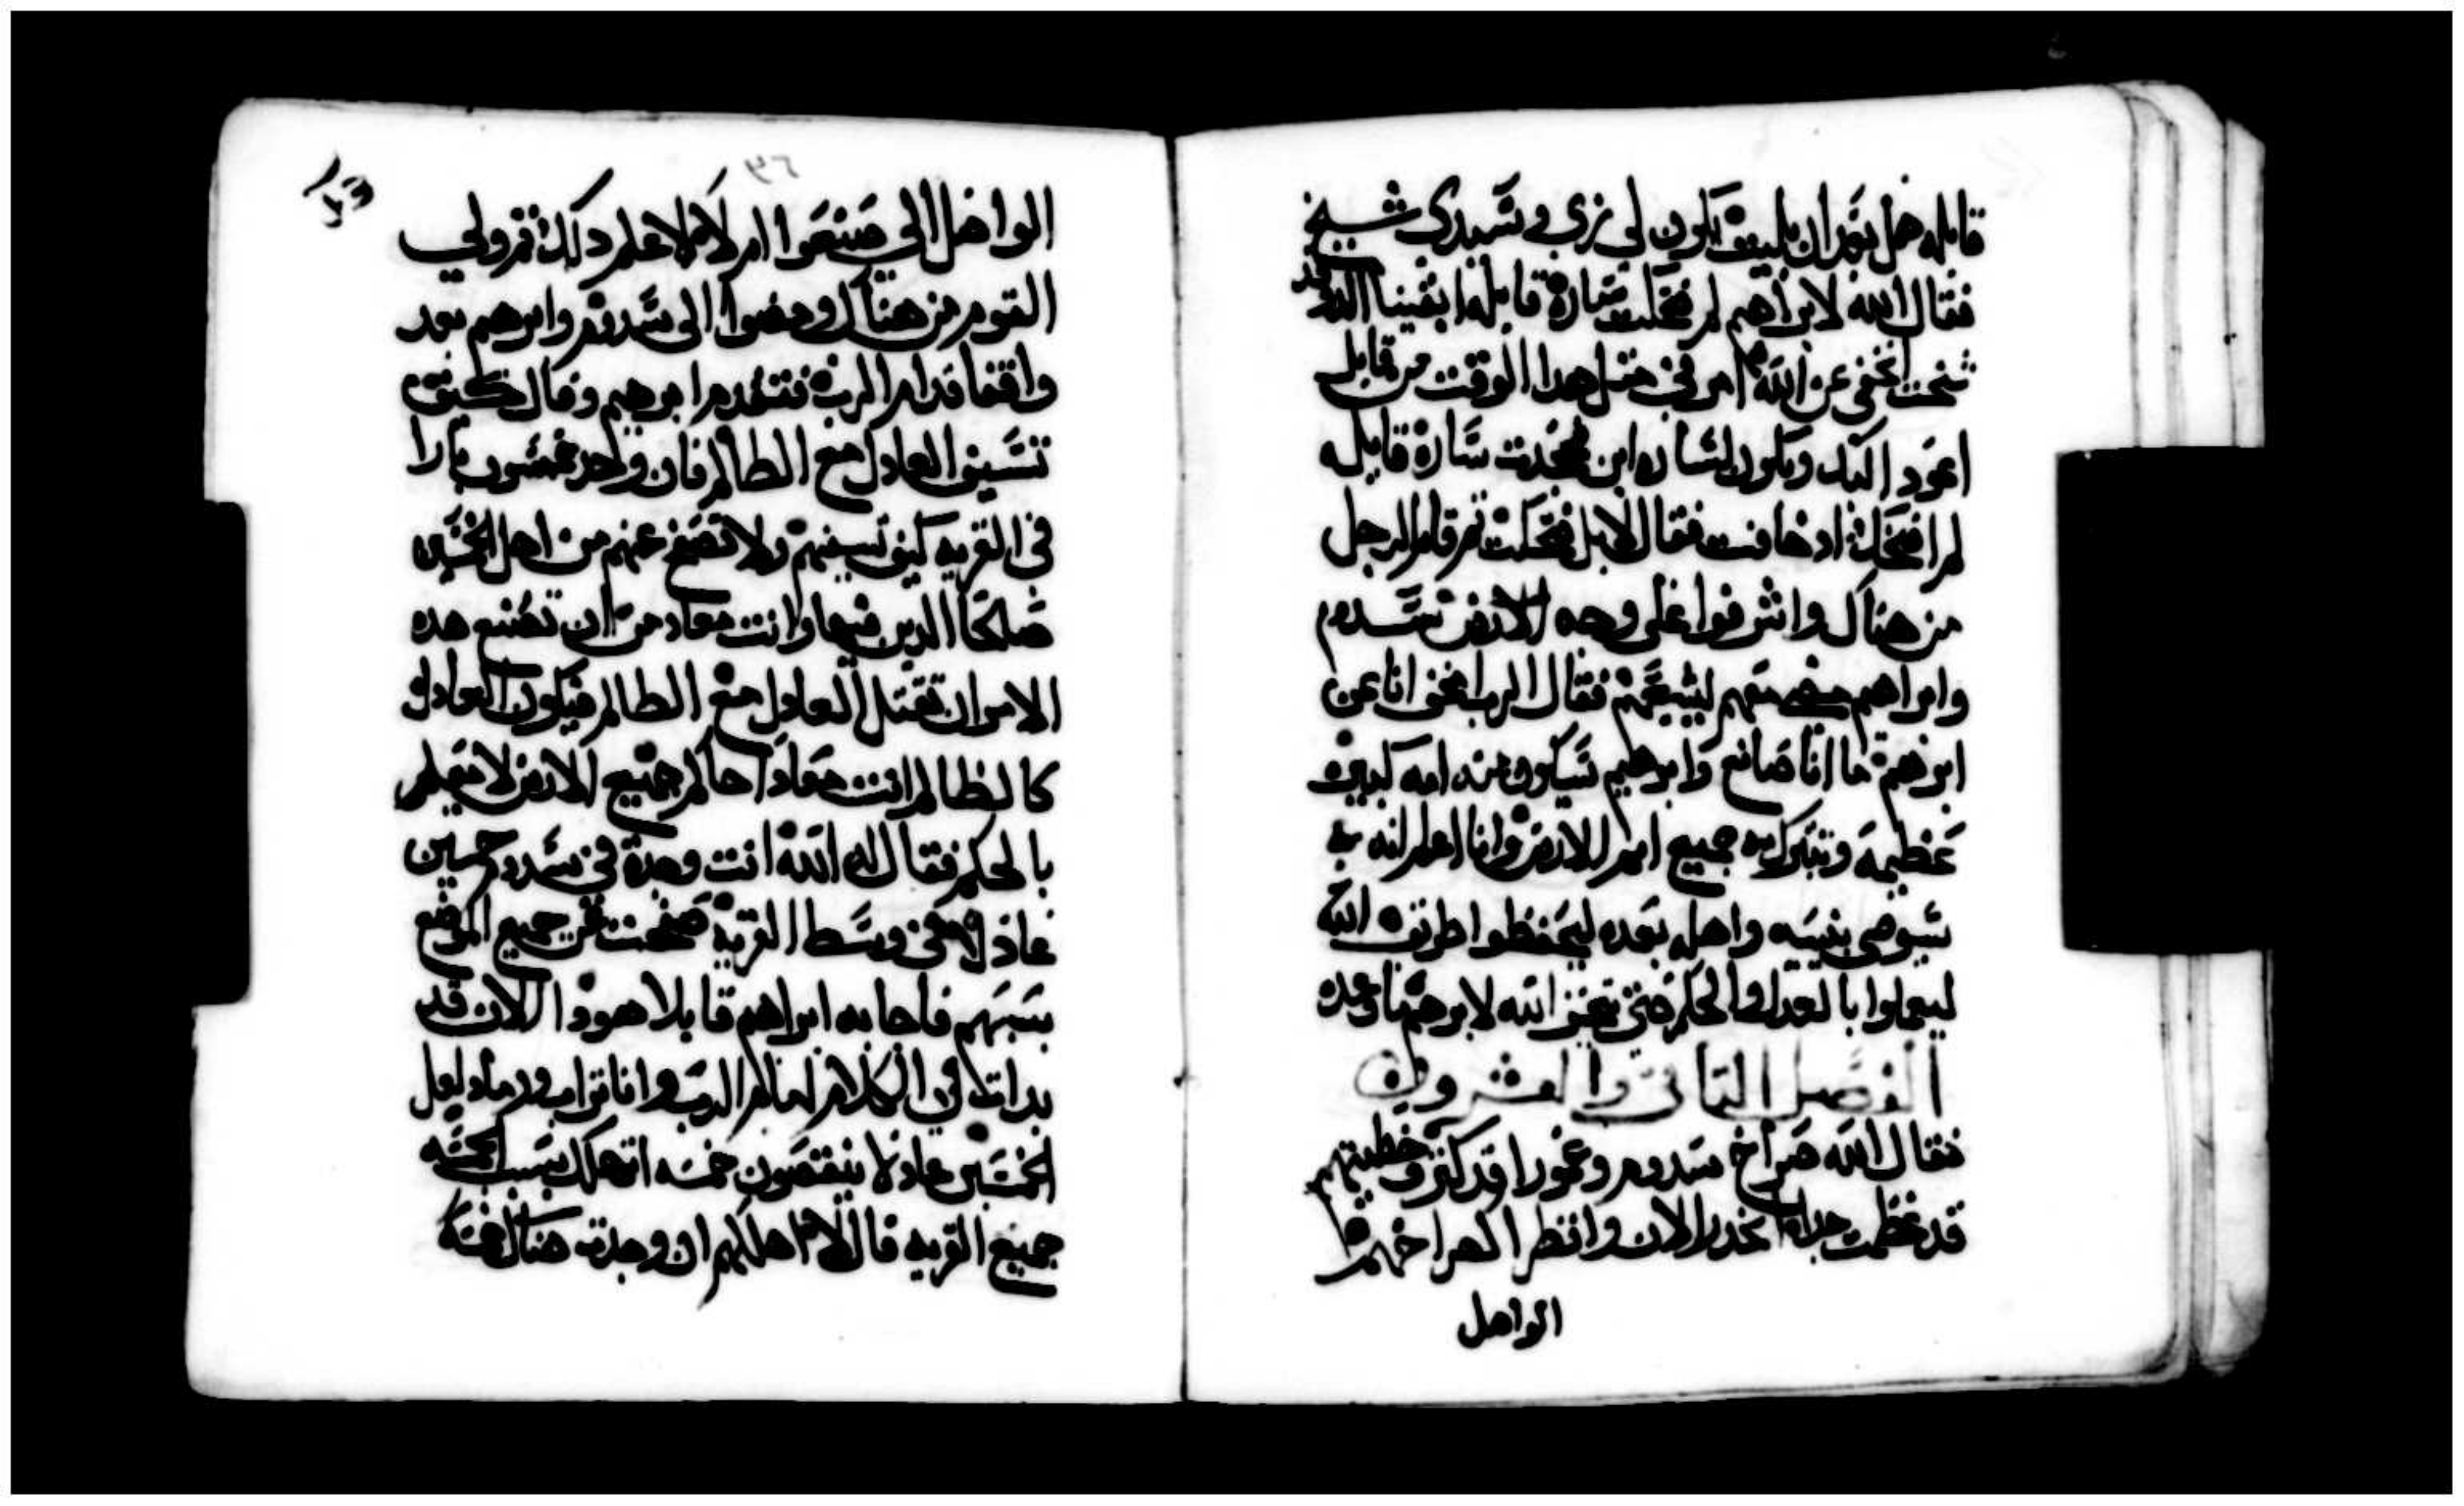 قايله هل بعد ان بليت يكون لي نزي وسيدي شيخ
فقال الله لابراهيم لم ضحكت ساره قايله ابقينا الد
شخت ايخفي عن الله امر في مثل هدا الوقت من قابل
اعود اليك ويكون لساره ابن فجحدت سارة قايله
لم اضحك اد خافت فقال لا بل ضحكت ثم قام الرجل
من هناك واشرفوا علي وجه الارض سدوم
وابراهيم معهم ليشيعهم فقال الرب اخفي انا عن
ابرهيم ما انا صانع وابرهيم سيكون منه امه كبيره
عظيمة وتتبرك به جميع امم الارض وانا اعلم انه
سيوصي بنيه واهله بعده ليحفظوا طريق الله
ليعملوا بالعدل والحكم حتي ينجز الله لابرهيم ما وعده
الفصل الثاني والعشرون
فقال الله صراخ سدوم وعمورا قد كثر وخطيتهم
قد عظمت جدا انحدر الان وانظر الصراخهم
الواصل
الواصل الي صنعوا ام لا لاعلم دلك ثم ولي
القوم من هناك ومضوا الى سدوم وابرهيم بعد
واقفا قدام الرب فتقدم ابرهيم وقال كيف
تسيف العادل مع الطالم فان واحد خمسون بارا
في القريه كيف تسيفهم ولا تصفح عنهم من اهل الخمسين
صالحا الدين فيها وانت معاد من ان تصنع هده
الامر ان تقتل العادل مع الطالم فيكون العادل
كالظالم انت معاد احاكم جميع الارض لا يعمل
بالحكم فقال له الله انت وجدة في سدوم خمسين
عادلا في وسط القرية صفحت عن جميع الموضع
بسببهم فاجابه ابراهيم قايلا هودا الان قد
بدات في الكلام امام الرب وانا تراب ورماد لعل
الخمسين عادلا ينقصون خمسه اتهلك بسبب الخمسه
جميع القريه قال لا اهلكهم ان وجدت هناك خمسة